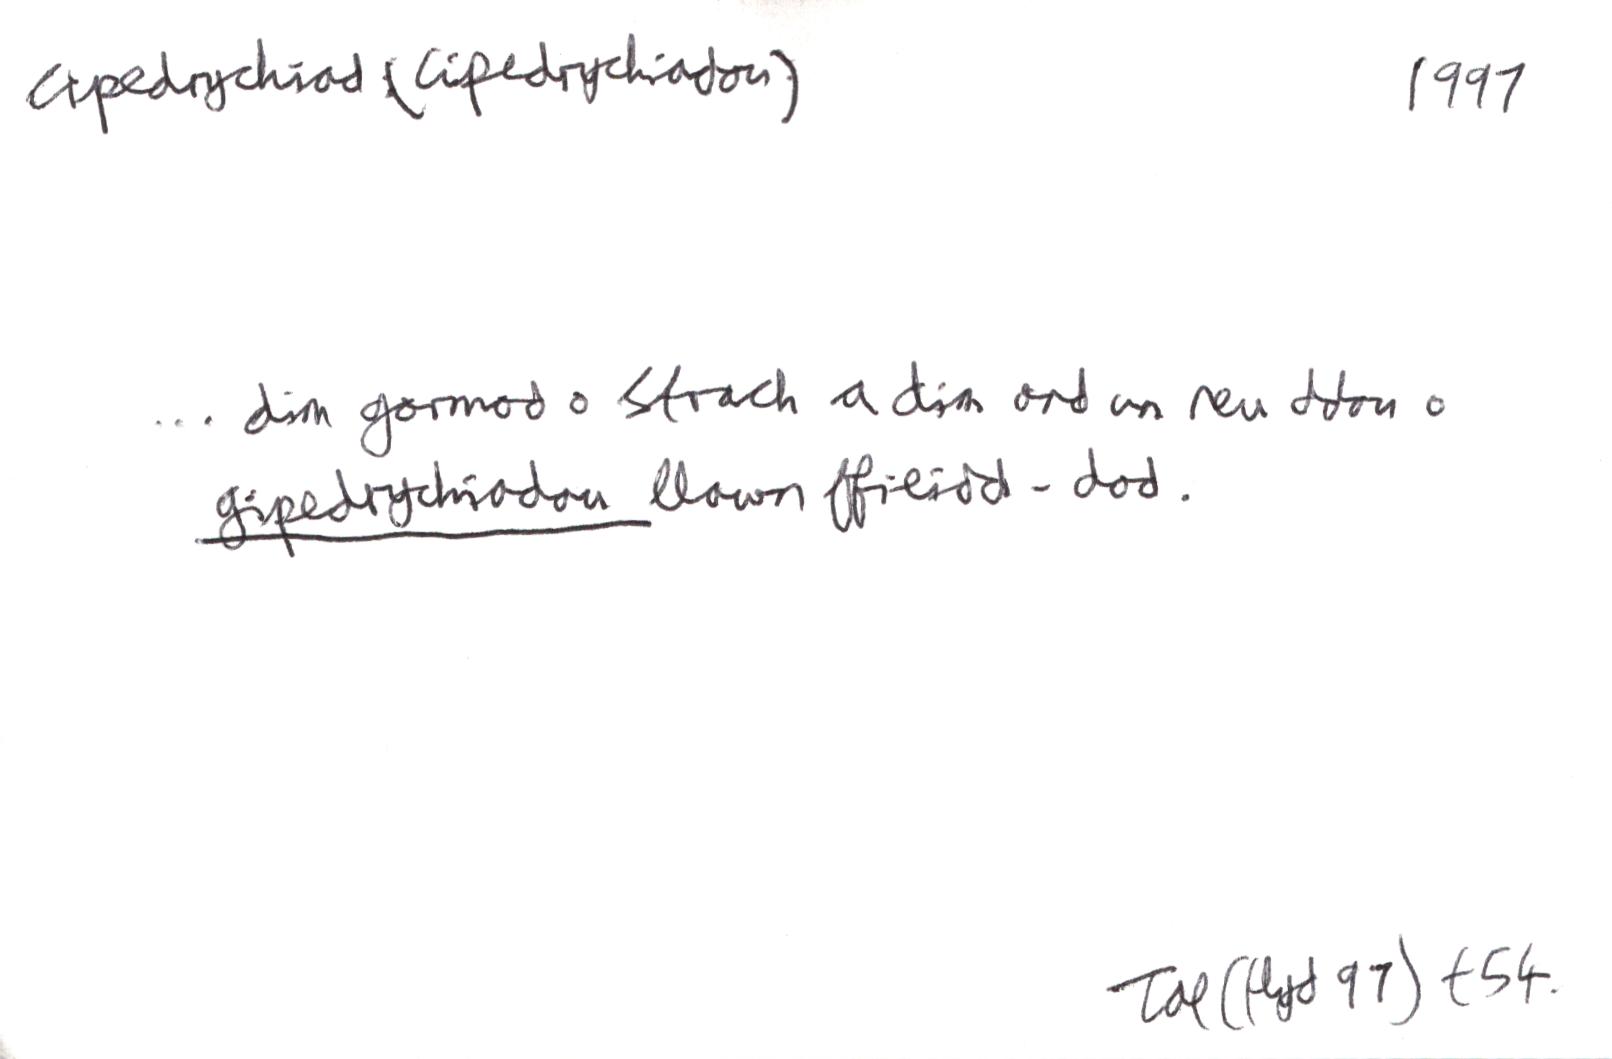 cipedrychiad (cipedrychiadau) 1997
... dim gormod o strach a dim ond un neu ddau o
gipedrychiadau llawn ffieidd-dod.
Tal (Hyd 97) t54.